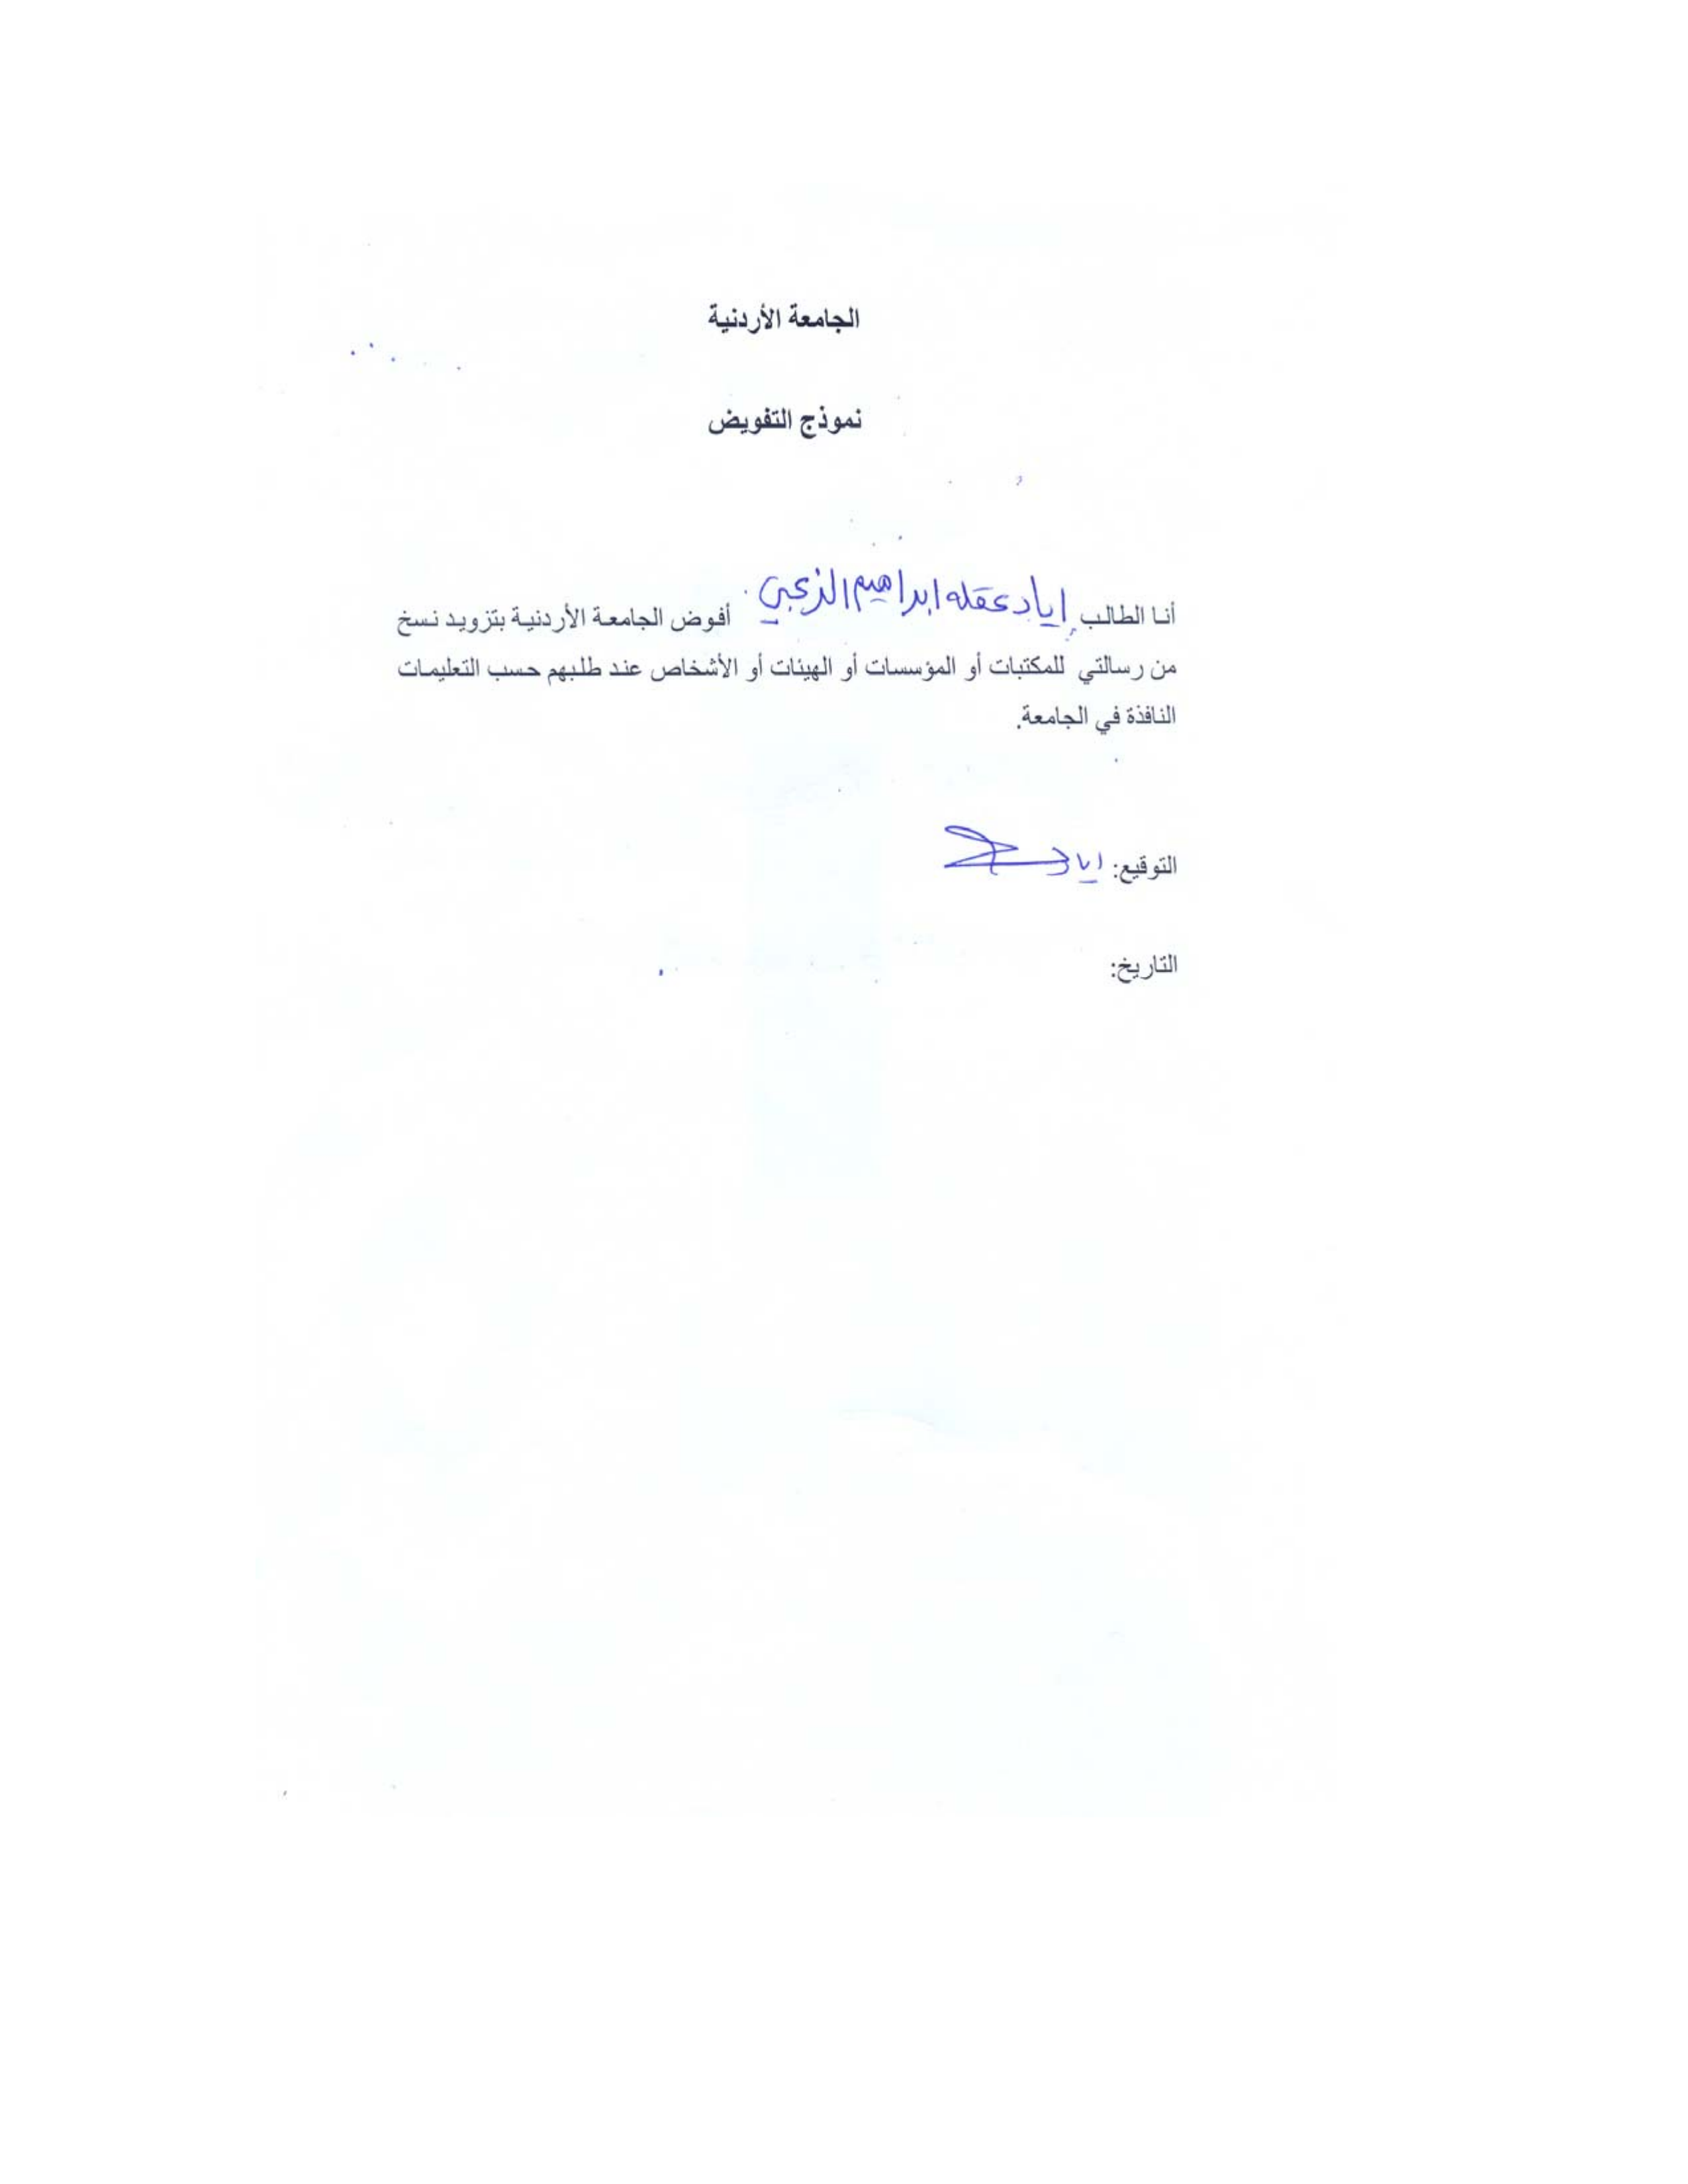 الجامعة الأردنية
نموذج التفويض
أنا الطالب اياد عقله ابراهيم الزعبي أفوض الجامعة الأردنية بتزويد نسخ
من رسالتي للمكتبات أو المؤسسات أو الهيئات أو الأشخاص عند طلبهم حسب التعليمات
النافذة في الجامعة.
التوقيع: اياد
التاريخ: